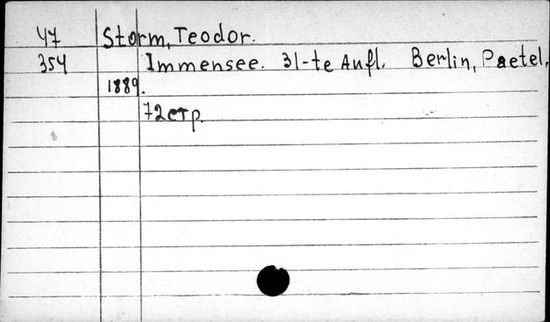 47 Storm, Teodor.
354 Immensee. 31-te Aufl. Berlin, Paetel,
1889.
72 стр.